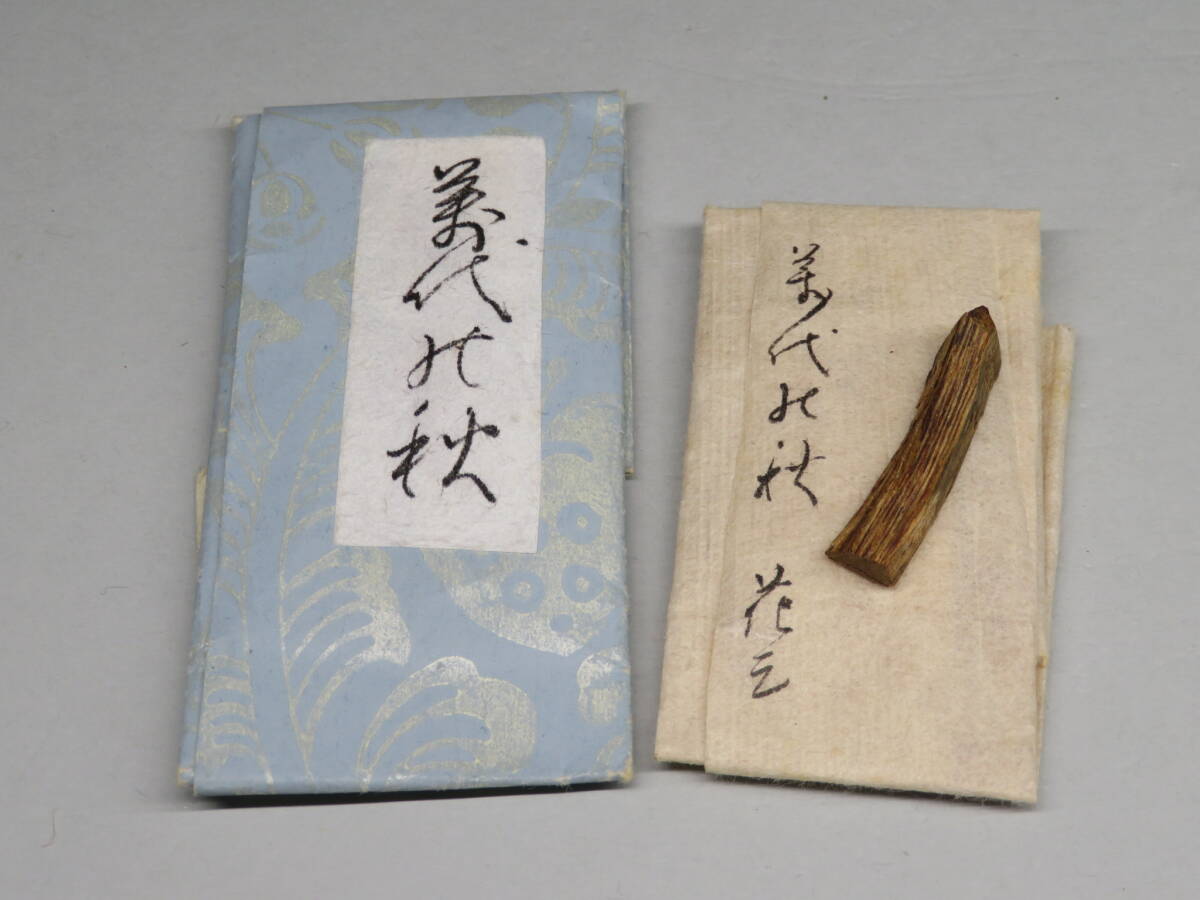 萬代の秋
萬代の秋 花三